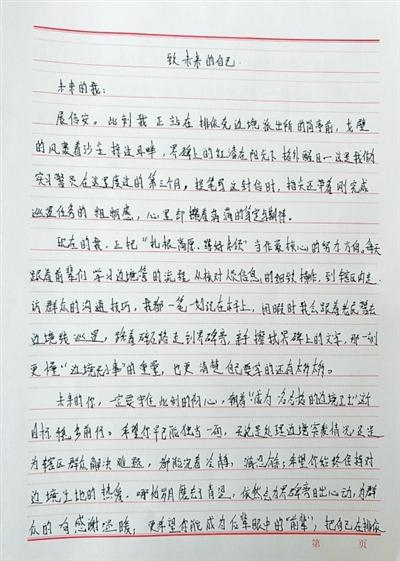 致未来的自己
未来的我:
展信安。此刻我正站在排依克边境派出所的岗亭前,戈壁
的风裹着沙尘掠过耳畔,界碑上的红漆在阳光下格外醒目—这是我做为
实习警员在这里度过的第三个月。提笔写这封信时,指尖还带着刚完成
巡逻任务的粗糙感,心里却揣着满满的坚定与期待。
现在的我,正把“扎根高原、爱好本领”当作最核心的努力方向。每天
跟着前辈们学习边境管控的流程,从核对信息的细致操作,到辖区内走
访群众的沟通技巧,我都一笔一划记在本子上,闲暇时我会跟着老民警去
边境线巡逻,踩着碎石路走到界碑旁,亲手擦拭界碑上的文字,那一刻
更懂“边境无小事”的重量,也更清楚自己要学的还有太多太多。
未来的你,一定要守住此刻的初心,朝着“成为合格的边境卫士”这个
目标稳步前行。希望你早已能独当一面,无论是处理边境突发情况,还是
为辖区群众解决难题,都能沉着冷静、游刃有余;希望你始终保持对
边境土地的热爱,哪怕岁月磨去了青涩,依然会为界碑旁日出心动,为群
众的一句感谢温暖;更希望你能成为后辈眼中的“前辈”,把自己在排依
第 页